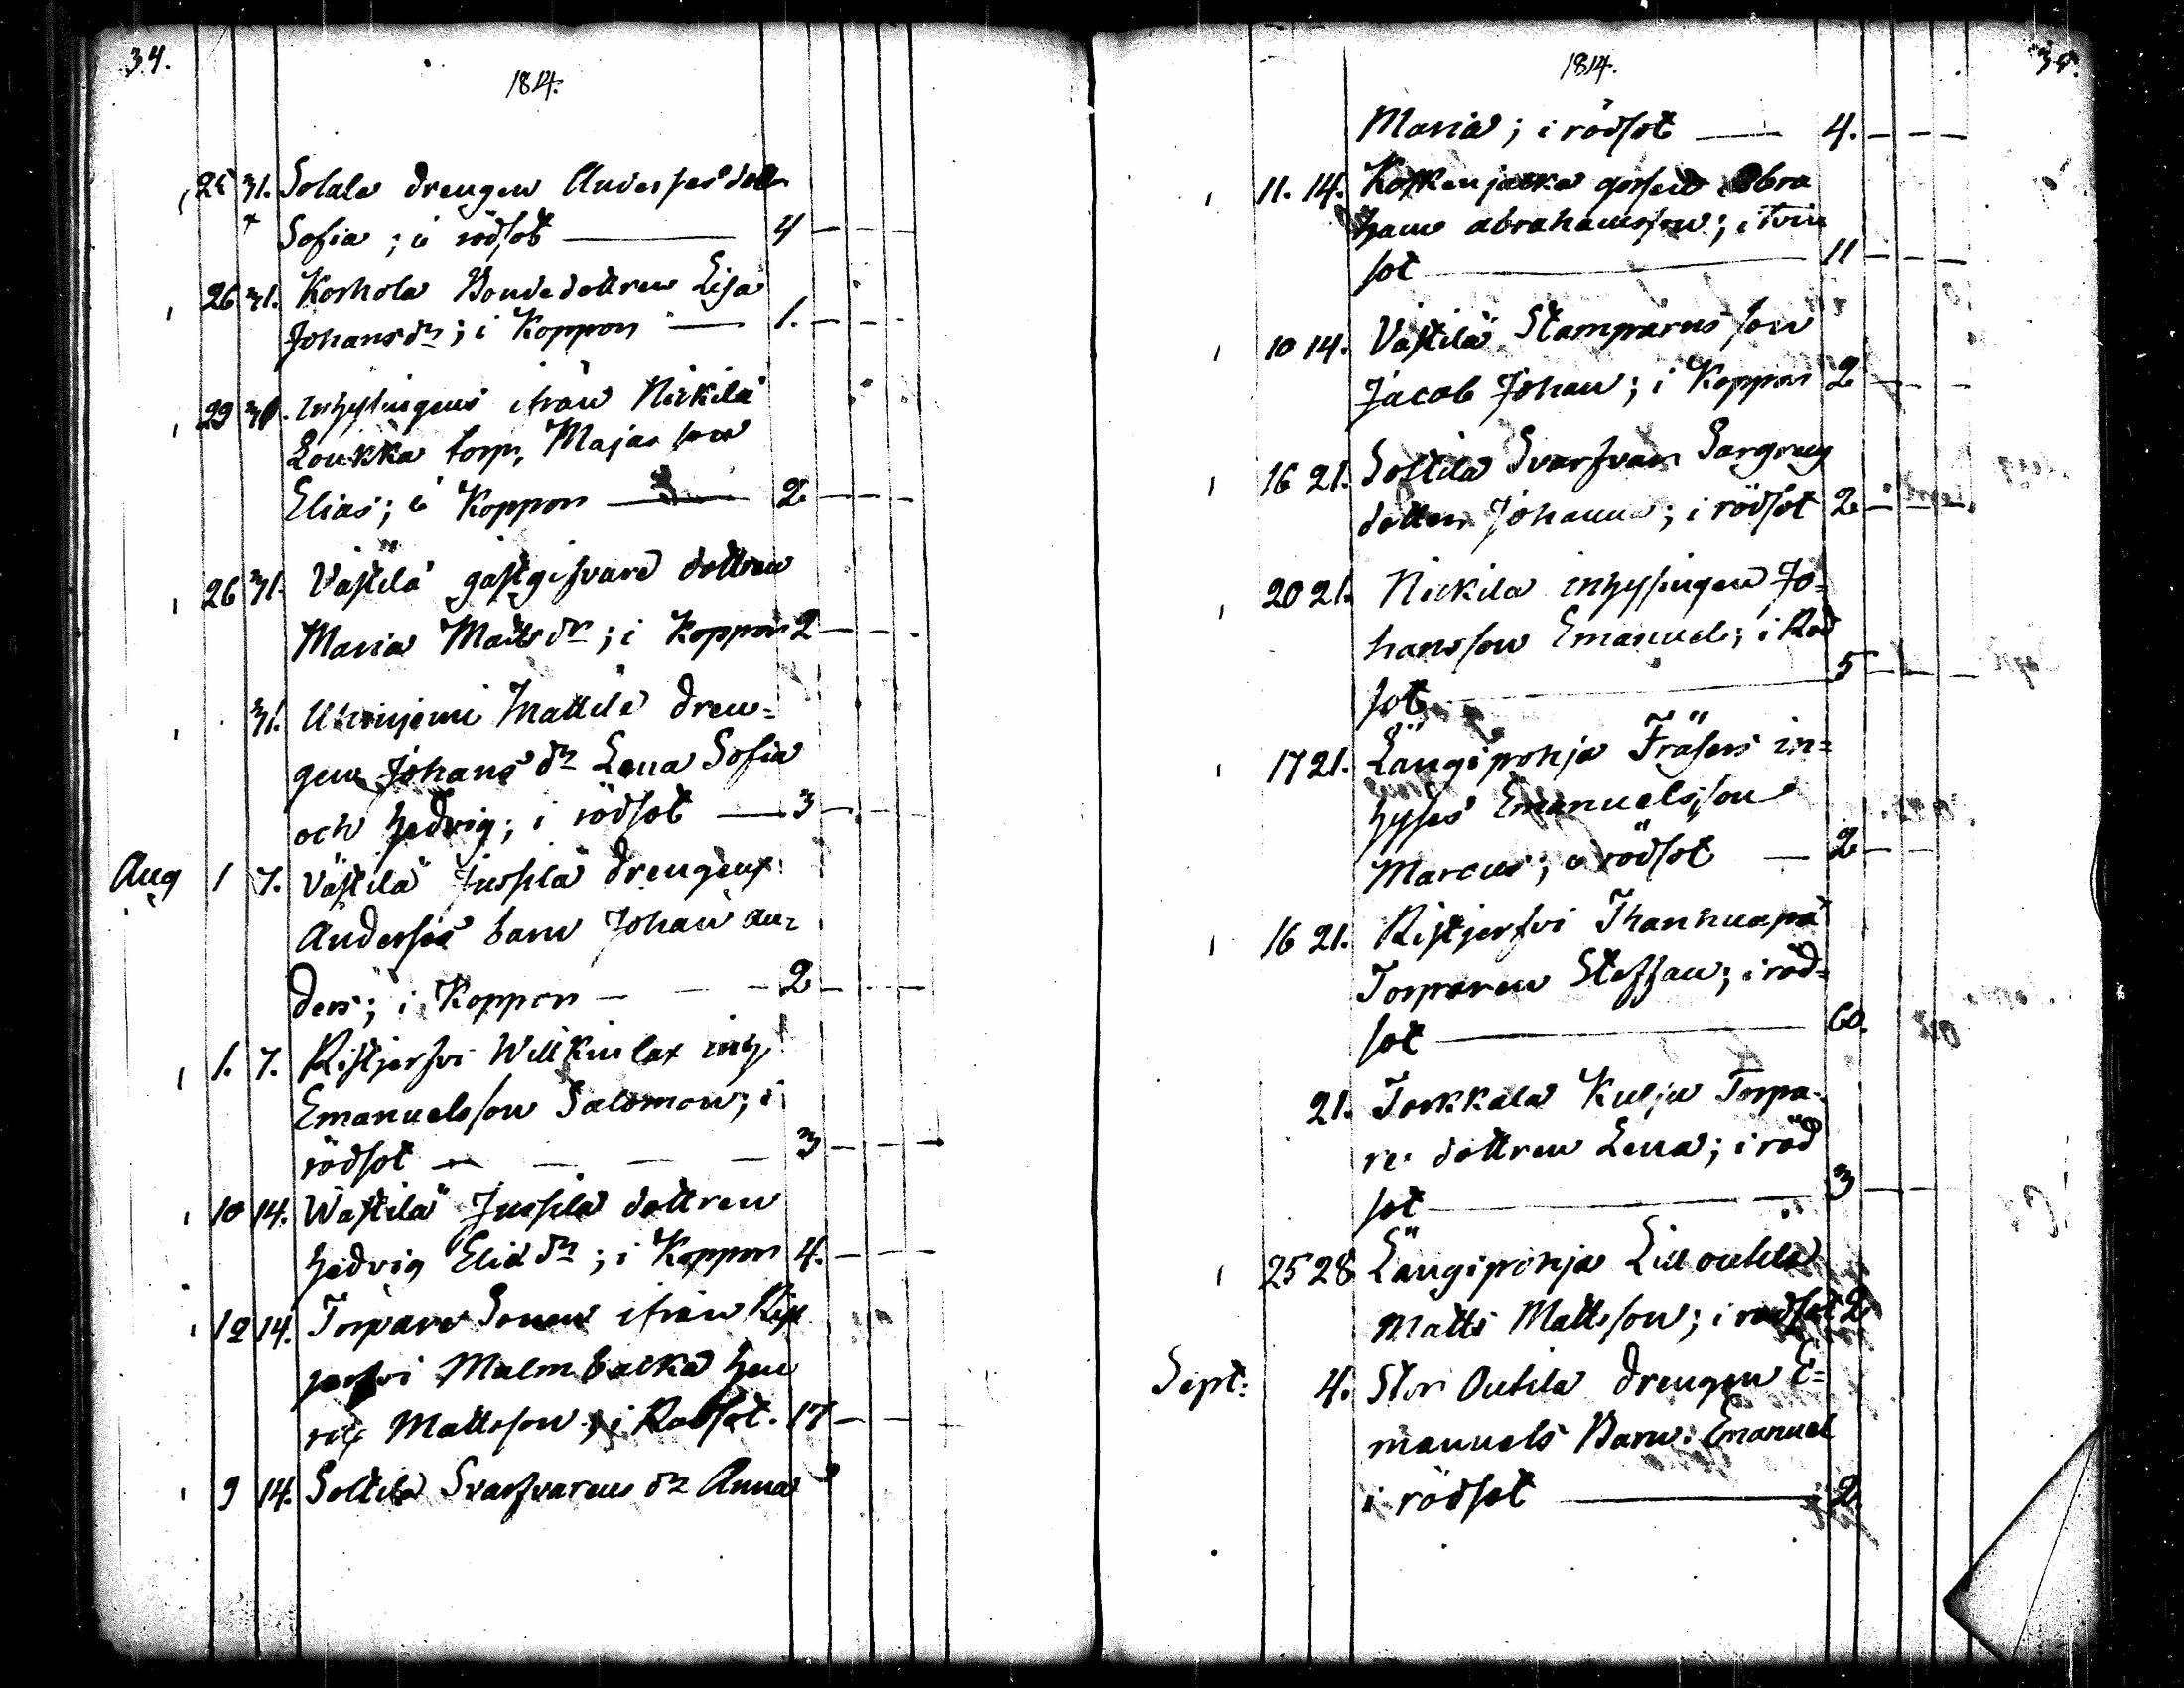 34.
1814.
25 31. Solala drengen Anderses dotter
Sofia; i rödsot — 4 — — —
26 31. Korhola Bondedottren Lisa
Johans dr; i Koppon — 1. — — —
29 31. inhysingens ifrån Nickilä
Loukka torp, Majas son
Elias; i Koppon — 2 — — —
26 31. Västilä gästgifvare dottren
Maria Matts dr; i Koppon 2 — — —
31. Mattila dren=
gen Johans dr Lena Sofia
och Hedvig; i rödsot — 3 — — —
Aug 1 7. Västilä Jussila drengens
Anderses barn Johan An=
ders; i Koppon — — — 2 — — —
1. 7. Ristjerfvi Willkinlax inh.
Emanuelsson Salomon; i
rödsot — — — — 3 — — —
10 14. Wästilä Jussila dottren
Hedvig Elia dr; i Koppon 4. — — —
12 14. Torpare Sonen ifrån Rist
jerfvi Malmbacka Hen
ric Mattsson; i Rödsot. 17 — — —
9 14. Soltila Svarfvarens dr Anna
35.
1814.
Maria; i rödsot — 4. — — —
11. 14. Koskenjacka gossen Abra
ham Abrahamsson; i tvin
sot — 11 — — —
10 14. Västilä Stamparens son
Jacob Johan; i Koppon 2 — — —
16 21. Soltila Svarfvar
dotter Johanna; i rödsot 2 — — —
20 21. Nickila inhysingen Jo=
hans son Emanuel; i Röd
sot — 5 — — —
17 21. Längipohja Fräsers in=
hyses Emanuels son
Marcus; i rödsot — 2 — —
16 21. Ristjerfvi Ihanhuapä
Torparen Steffan; i röd=
sot — 60.
21. Torkkala Kulju Torpa-
re dottren Lena; i röd
sot — 3 — —
25 28 Längipohja Lill outila
Matts Mattsson; i rödsot 2
Sept: 4. Stor Outila drengen E=
manuels Barn: Emanuel
i rödsot — 2